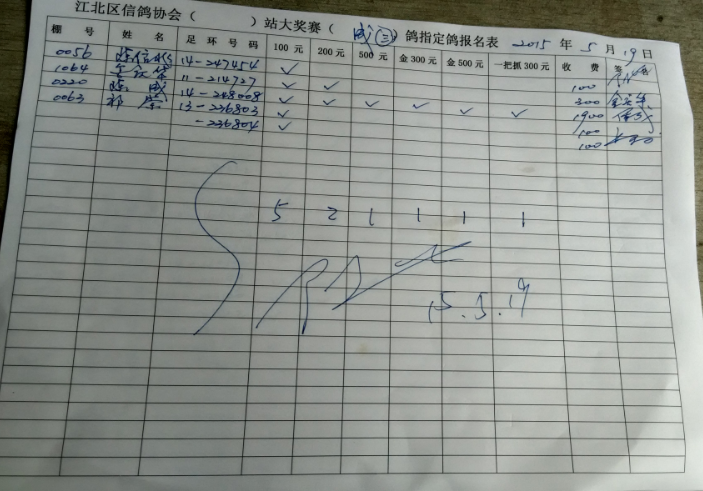 江北区信鸽协会（ ）站大奖赛（ 成㊂ 鸽指定鸽报名表 2015 年 5 月 19 日
棚 号 姓 名 足 环 号 码 100 元 200 元 500 元 金 300 元 金 500 元 一把抓 300 元 收 费 签
0056 14-247454 ✓ 100
1064 11-214727 ✓ ✓ 300
0220 陈 成 14-268008 ✓ ✓ ✓ ✓ ✓ ✓ 1900
0063 13-236803 ✓ 100
-236804 ✓ 100
5 2 1 1 1 1
15.5.19